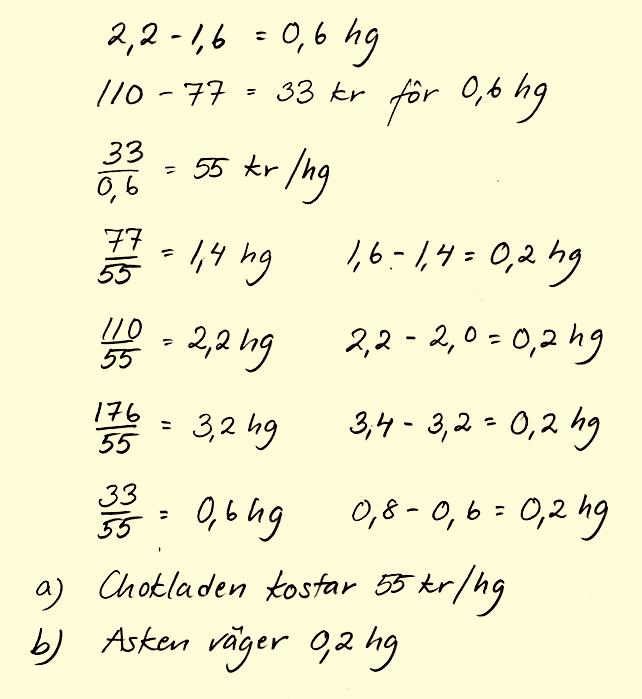 2,2 - 1,6 = 0,6 hg
110 - 77 = 33 kr för 0,6 hg
33/0,6 = 55 kr/hg
77/55 = 1,4 hg 1,6 - 1,4 = 0,2 hg
110/55 = 2,2 hg 2,2 - 2,0 = 0,2 hg
176/55 = 3,2 hg 3,4 - 3,2 = 0,2 hg
33/55 = 0,6 hg 0,8 - 0,6 = 0,2 hg
a) Chokladen kostar 55 kr/hg
b) Asken väger 0,2 hg